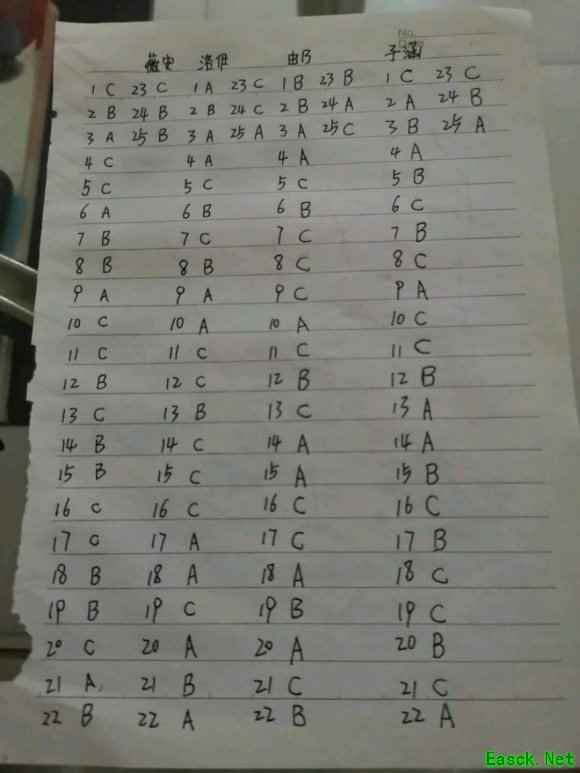 No.
薇安 洛伊 由乃 子涵
1 C 23 C 1 A 23 C 1 B 23 B 1 C 23 C
2 B 24 B 2 B 24 C 2 B 24 A 2 A 24 B
3 A 25 B 3 A 25 A 3 A 25 C 3 B 25 A
4 C 4 A 4 A 4 A
5 C 5 C 5 C 5 B
6 A 6 B 6 B 6 C
7 B 7 C 7 C 7 B
8 B 8 B 8 C 8 C
9 A 9 A 9 C 9 A
10 C 10 A 10 A 10 C
11 C 11 C 11 C 11 C
12 B 12 C 12 B 12 B
13 C 13 B 13 C 13 A
14 B 14 C 14 A 14 A
15 B 15 C 15 A 15 B
16 C 16 C 16 C 16 C
17 C 17 A 17 C 17 B
18 B 18 A 18 A 18 C
19 B 19 C 19 B 19 C
20 C 20 A 20 A 20 B
21 A 21 B 21 C 21 C
22 B 22 A 22 B 22 A
Easck.Net